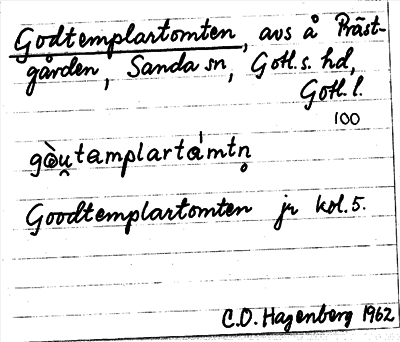 Godtemplartomten, avs å Präst-
gården, Sanda sn, Gotl.s. hd,
Gotl. l.
100
gòu̯tamplartámtn̥
Goodtemplartomten jr kol. 5.
C.O. Hagenberg 1962